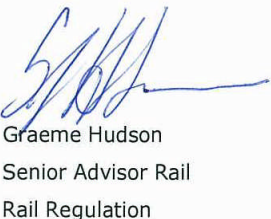 Graeme Hudson
Senior Advisor Rail
Rail Regulation